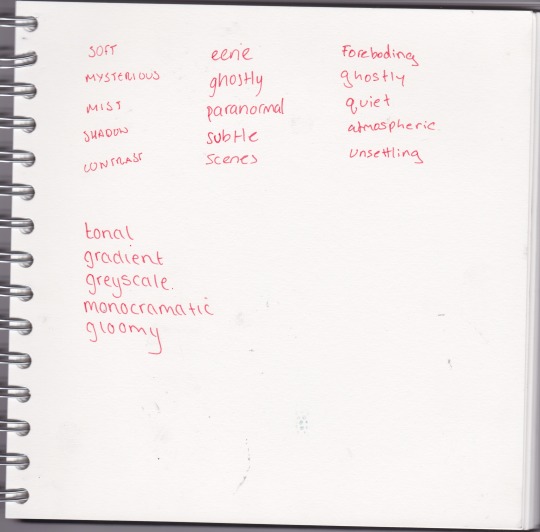 SOFT eerie Foreboding
MYSTERIOUS ghostly ghostly
MIST paranormal quiet
SHADOW subtle atmospheric
CONTRAST scenes unsettling
tonal
gradient
greyscale.
monocramatic
gloomy